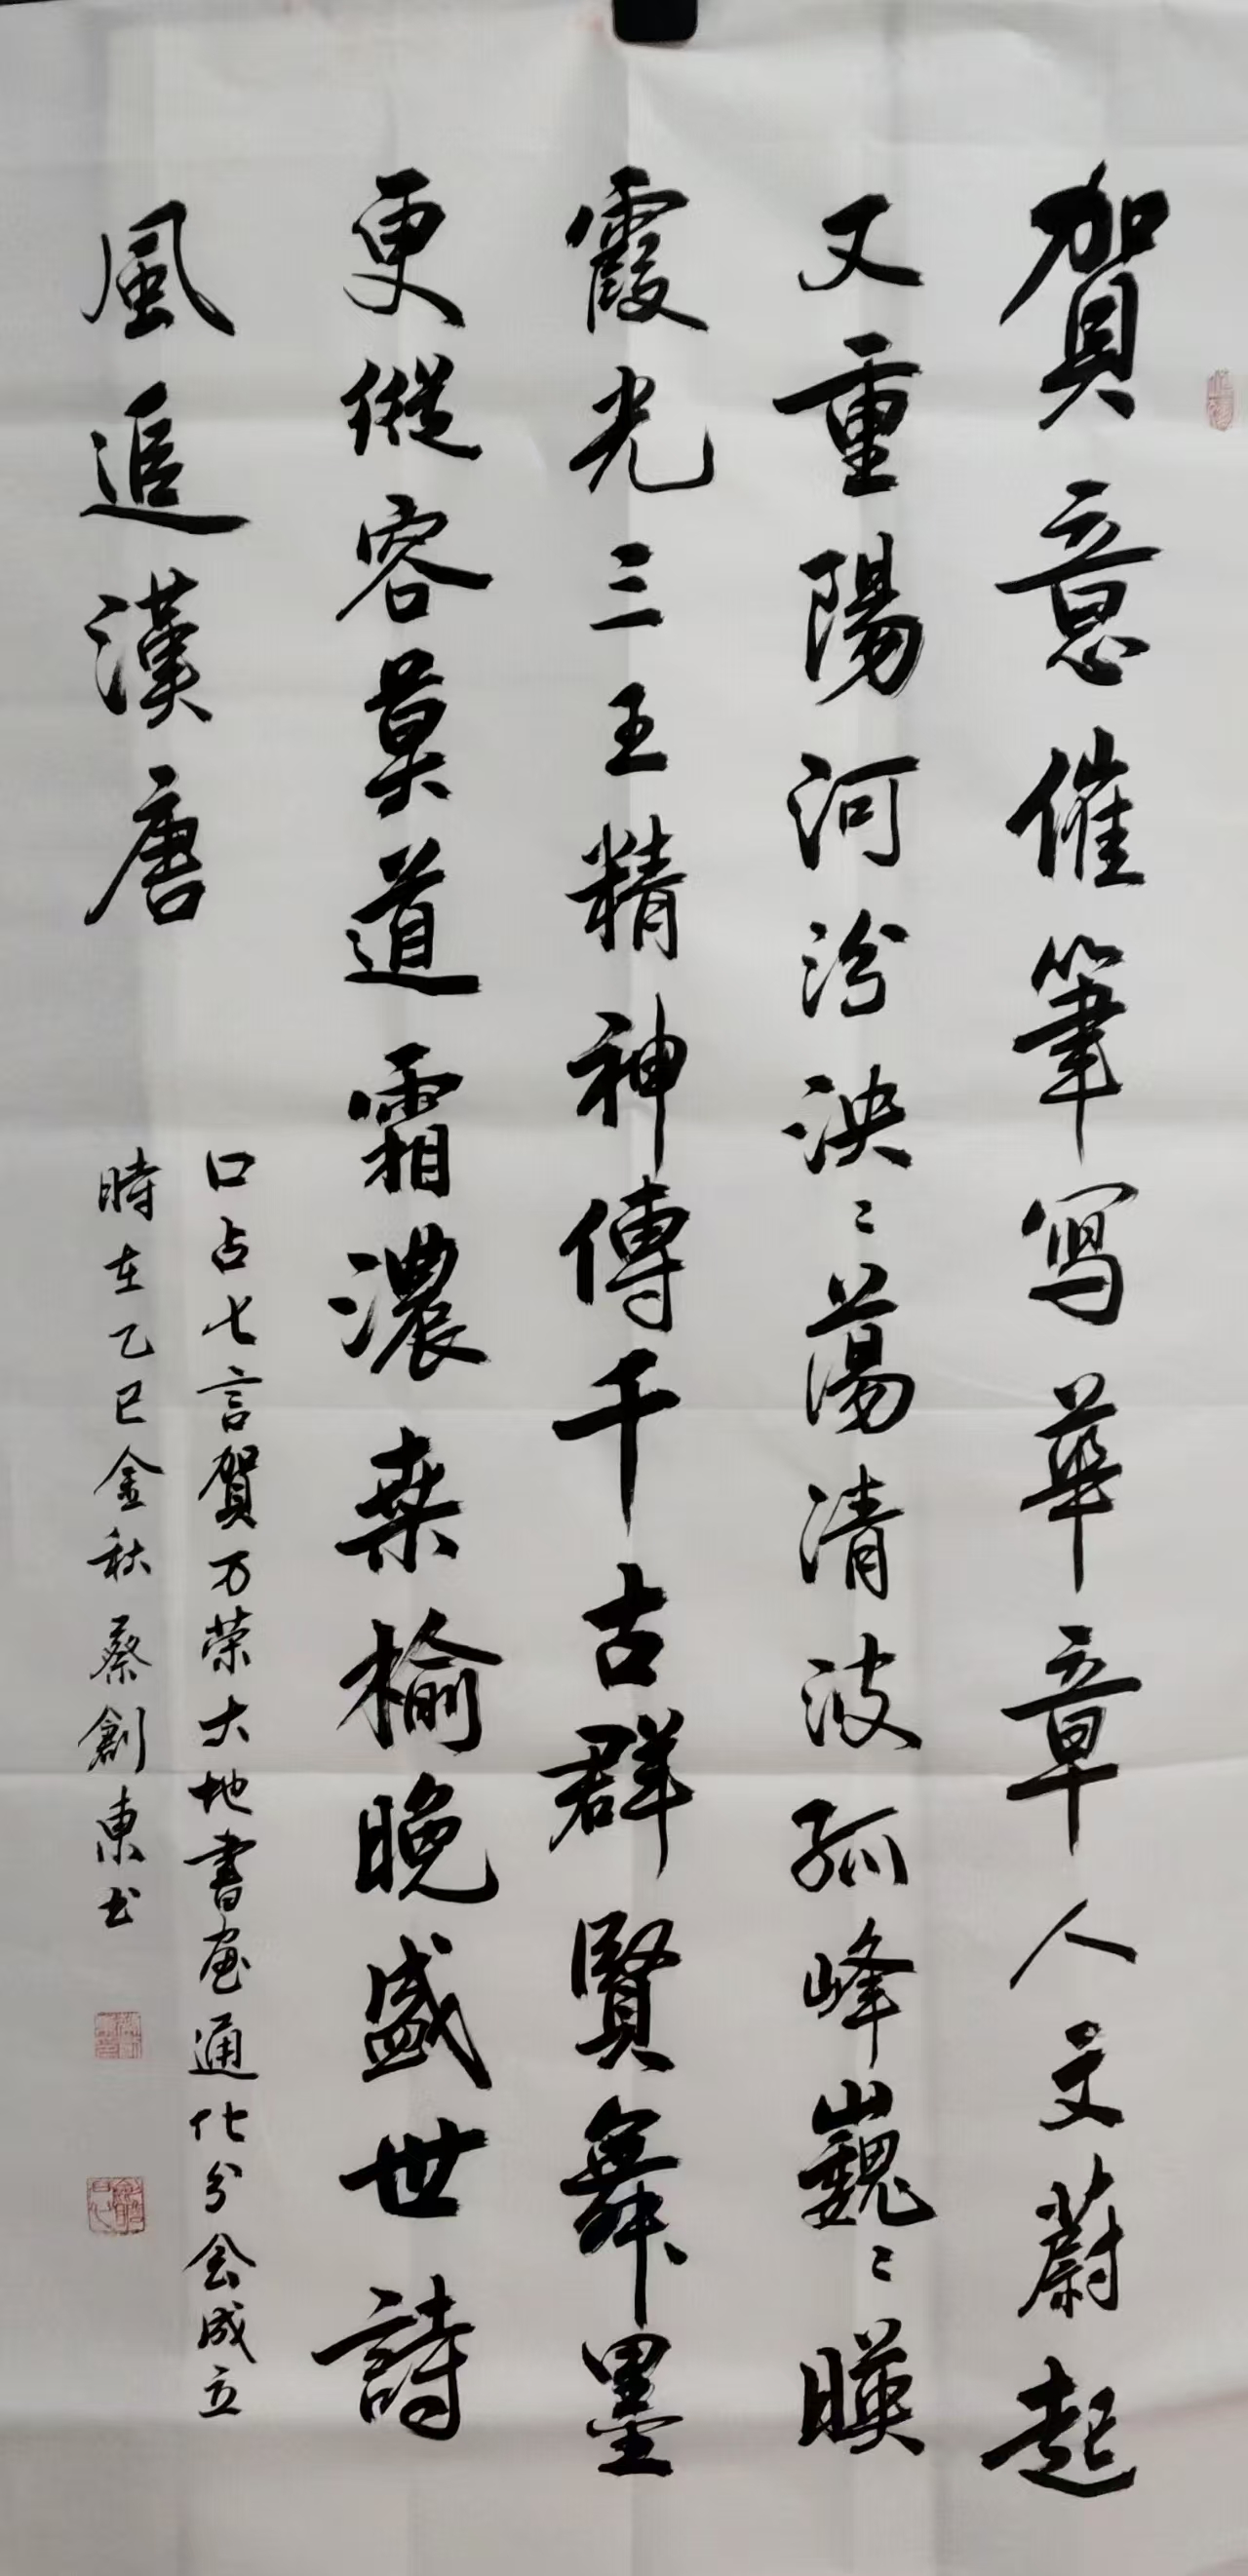 賀意催筆寫華章人文蔚起
又重陽河汾泱〻蕩清波孤峰巍〻暎
霞光三王精神傳千古群賢舞墨
更縱容莫道霜濃桒榆晚盛世詩
風追漢唐
口占七言賀万荣大地書画通化分会成立
時在乙巳金秋蔡創東书